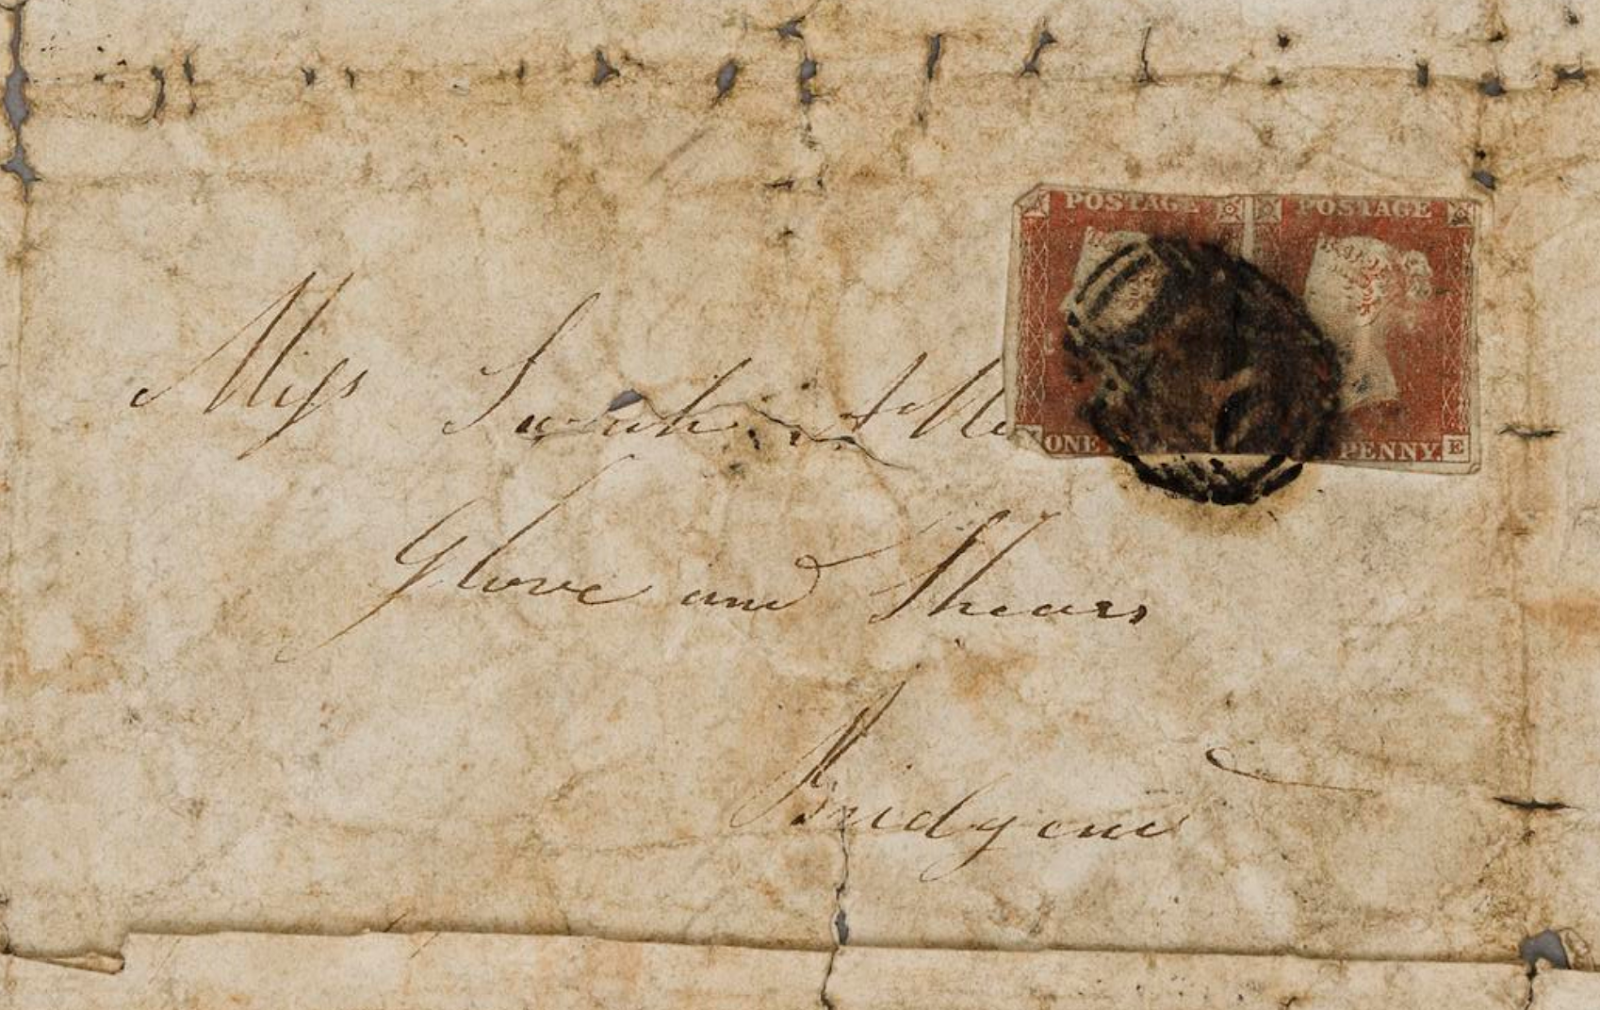 POSTAGE POSTAGE
Miss Sarah
ONE PENNY E
Glove and Shears